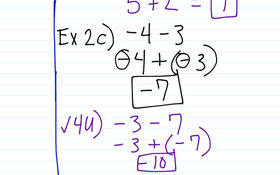 5 + 2 = 7
Ex 2c) -4 - 3
-4 + (-3)
-7
√4U) -3 - 7
-3 + (-7)
-10